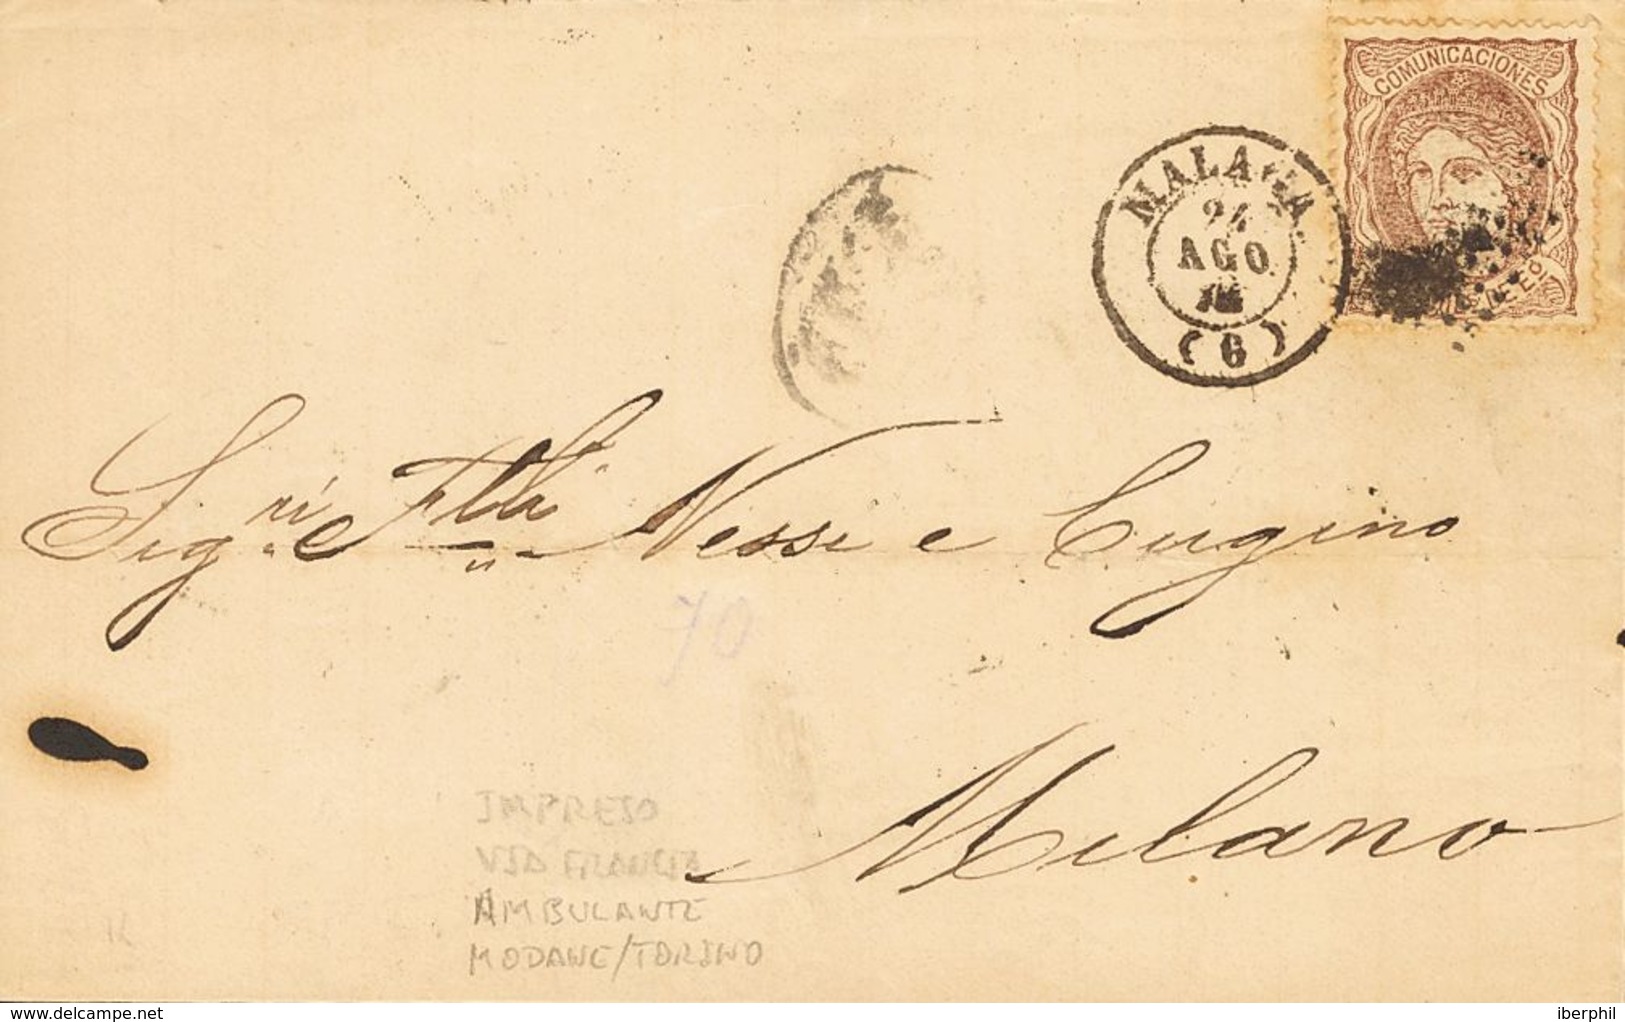 COMUNICACIONES
MALAGA
24
AGO
(6)
Sig.ri Flli Nessi e Cugino
70
Milano
IMPRESO
VIA FRANCIA
AMBULANTE
MODANE/TORINO
delcampe.net
iberphil